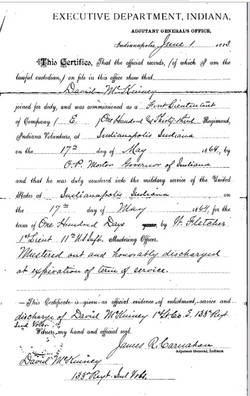 EXECUTIVE DEPARTMENT, INDIANA,
ADJUTANT GENERAL'S OFFICE,
Indianapolis June 1
This Certifies, That the official records, (of which I am the
lawful custodian,) on file in this office show that
David McKinney
joined for duty, and was commissioned as a First Lieutenant
of Company (E) One Hundred & Thirty third Regiment,
Indiana Volunteers, at Indianapolis Indiana
on the 17th day of May 1864, by
O.P. Morton Governor of Indiana
and that he was duly mustered into the military service of the United
States at Indianapolis Indiana on
the 17th day of May 1864, for the
term of One Hundred Days by W. Fletcher
1st Lieut 11th U.S. Inft. Mustering Officer.
Mustered out and honorably discharged
at expiration of term of service.
This Certificate is given as official evidence of enlistment, service and
discharge of David McKinney 1st Lt Co. E. 133" Regt
Ind Vols.
Witness, my hand and official seal,
James R. Carnahan
Adjutant General, Indiana
David McKinney
133" Regt. Ind Vols.